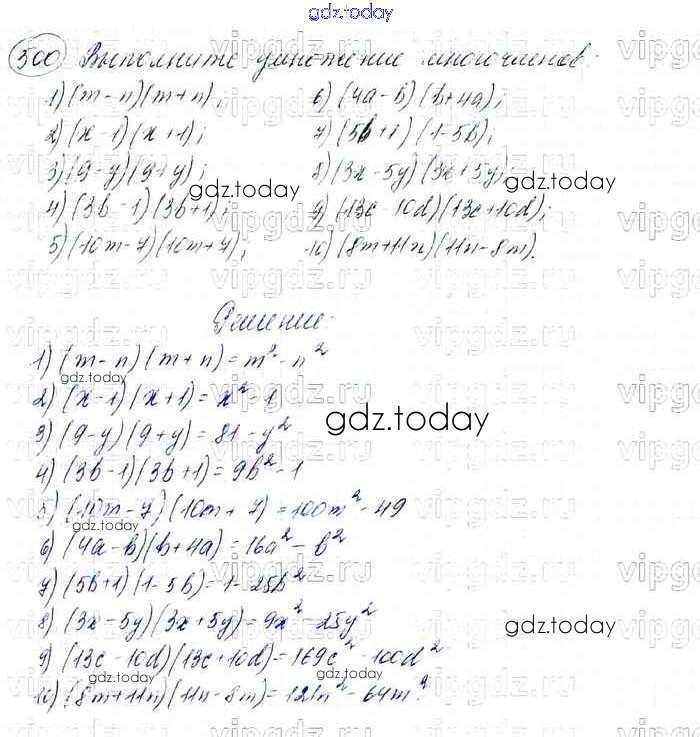 gdz.today
500 Выполните умножение многочленов:
1) (m - n)(m + n);
6) (4a - b)(b + 4a);
2) (x - 1)(x + 1);
7) (5b + 1)(1 - 5b);
3) (9 - y)(9 + y);
8) (3x - 5y)(3x + 5y);
4) (3b - 1)(3b + 1);
9) (13c - 10d)(13c + 10d);
5) (10m - 7)(10m + 7);
10) (8m + 11n)(11n - 8m).
Решение:
1) (m - n)(m + n) = m² - n²
2) (x - 1)(x + 1) = x² - 1
3) (9 - y)(9 + y) = 81 - y²
4) (3b - 1)(3b + 1) = 9b² - 1
5) (10m - 7)(10m + 7) = 100m² - 49
6) (4a - b)(b + 4a) = 16a² - b²
7) (5b + 1)(1 - 5b) = 1 - 25b²
8) (3x - 5y)(3x + 5y) = 9x² - 25y²
9) (13c - 10d)(13c + 10d) = 169c² - 100d²
10) (8m + 11n)(11n - 8m) = 121n² - 64m²
gdz.today
gdz.today
gdz.today
gdz.today
gdz.today
gdz.today
gdz.today
vipgdz.ru